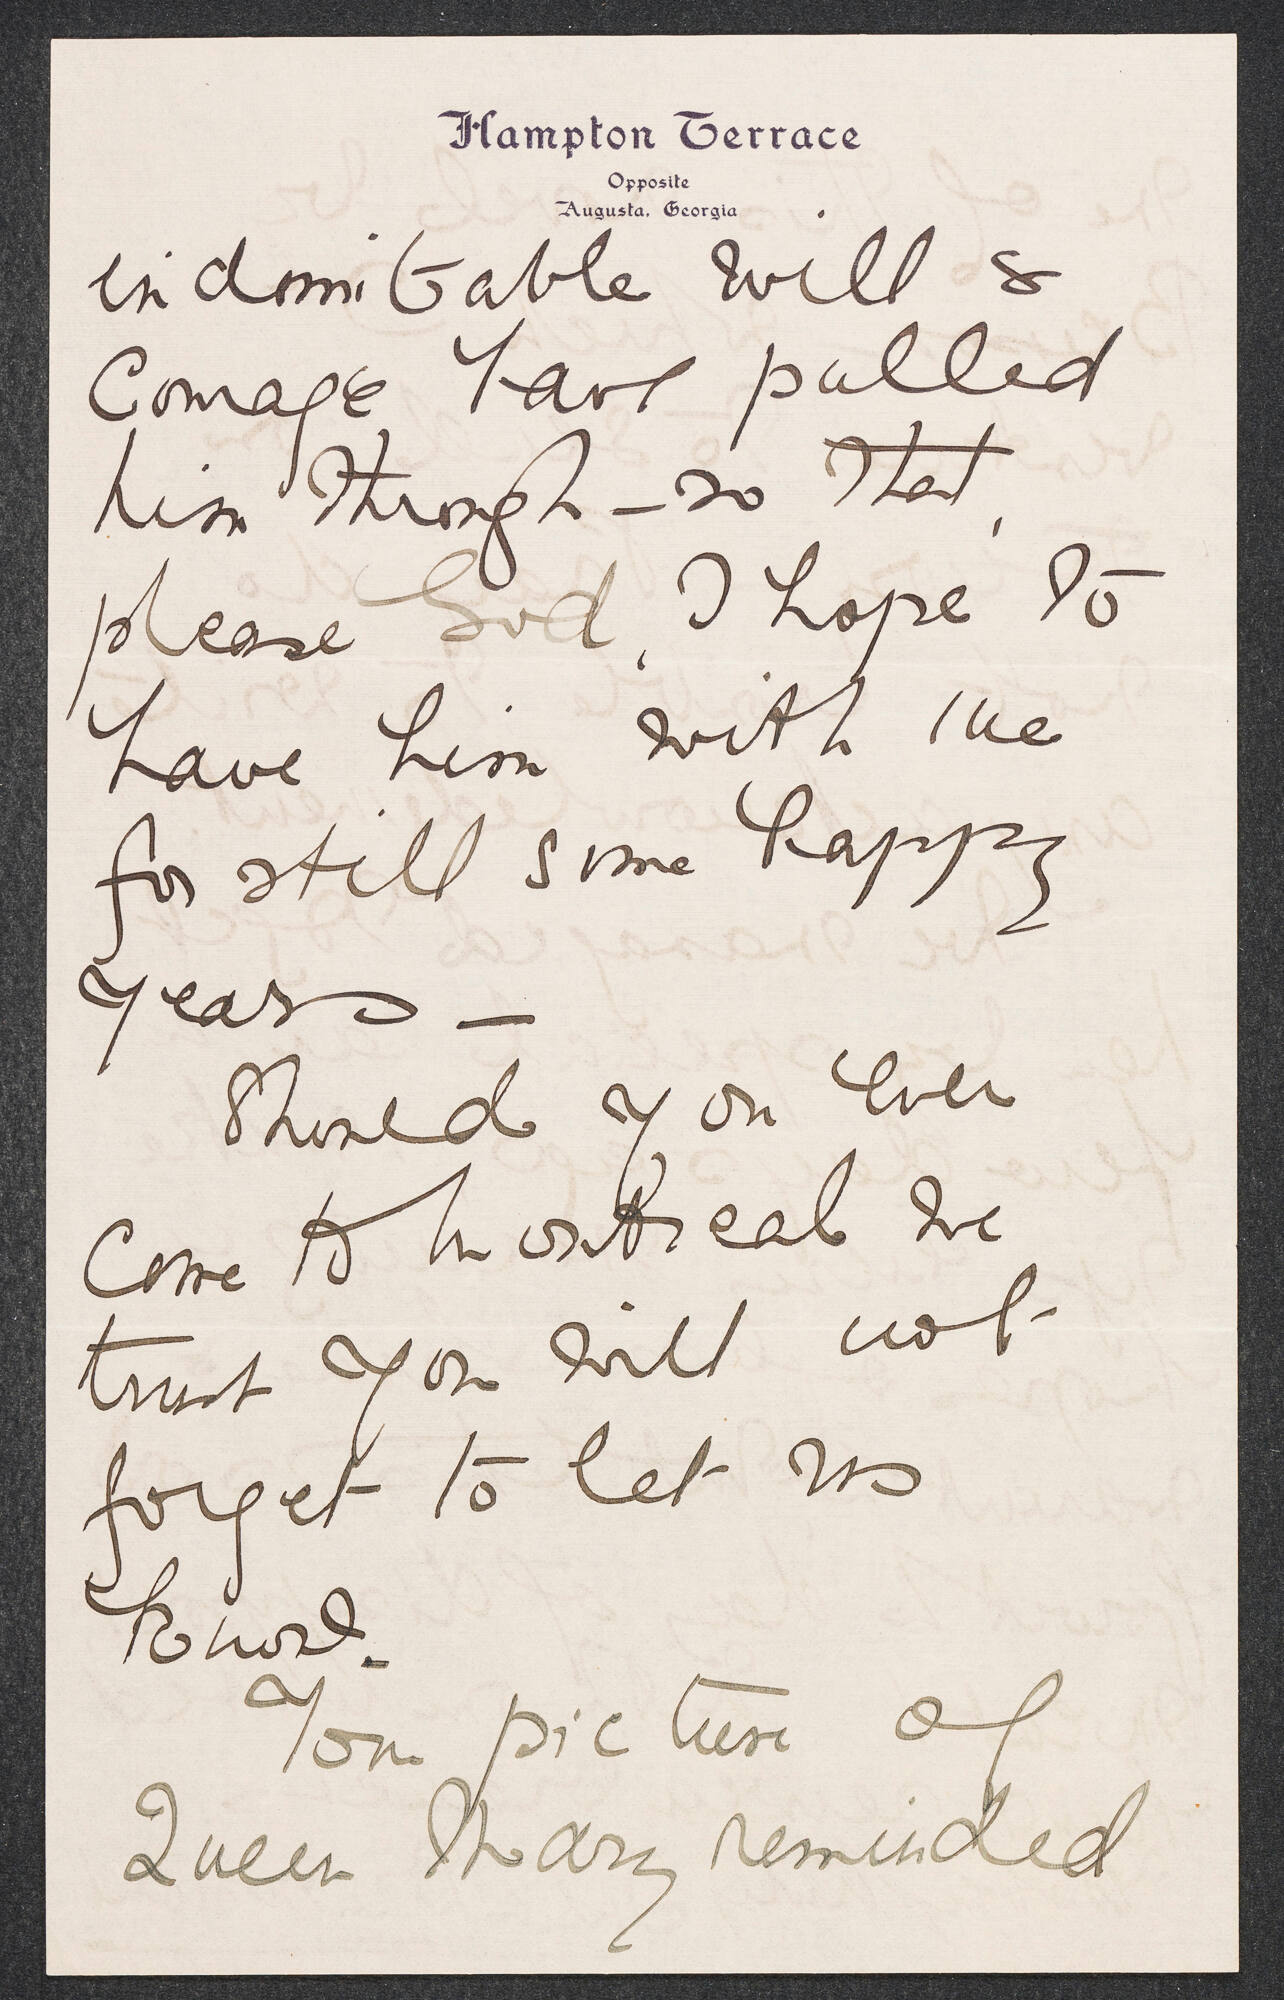 Hampton Terrace
Opposite
Augusta, Georgia
indomitable will &
Courage have pulled
him through – so that,
please God, I hope to
have him with me
for still some happy
years –
Should you ever
Come to Montreal we
trust you will not
forget to let us
know.
Your picture of
Queen Mary reminded